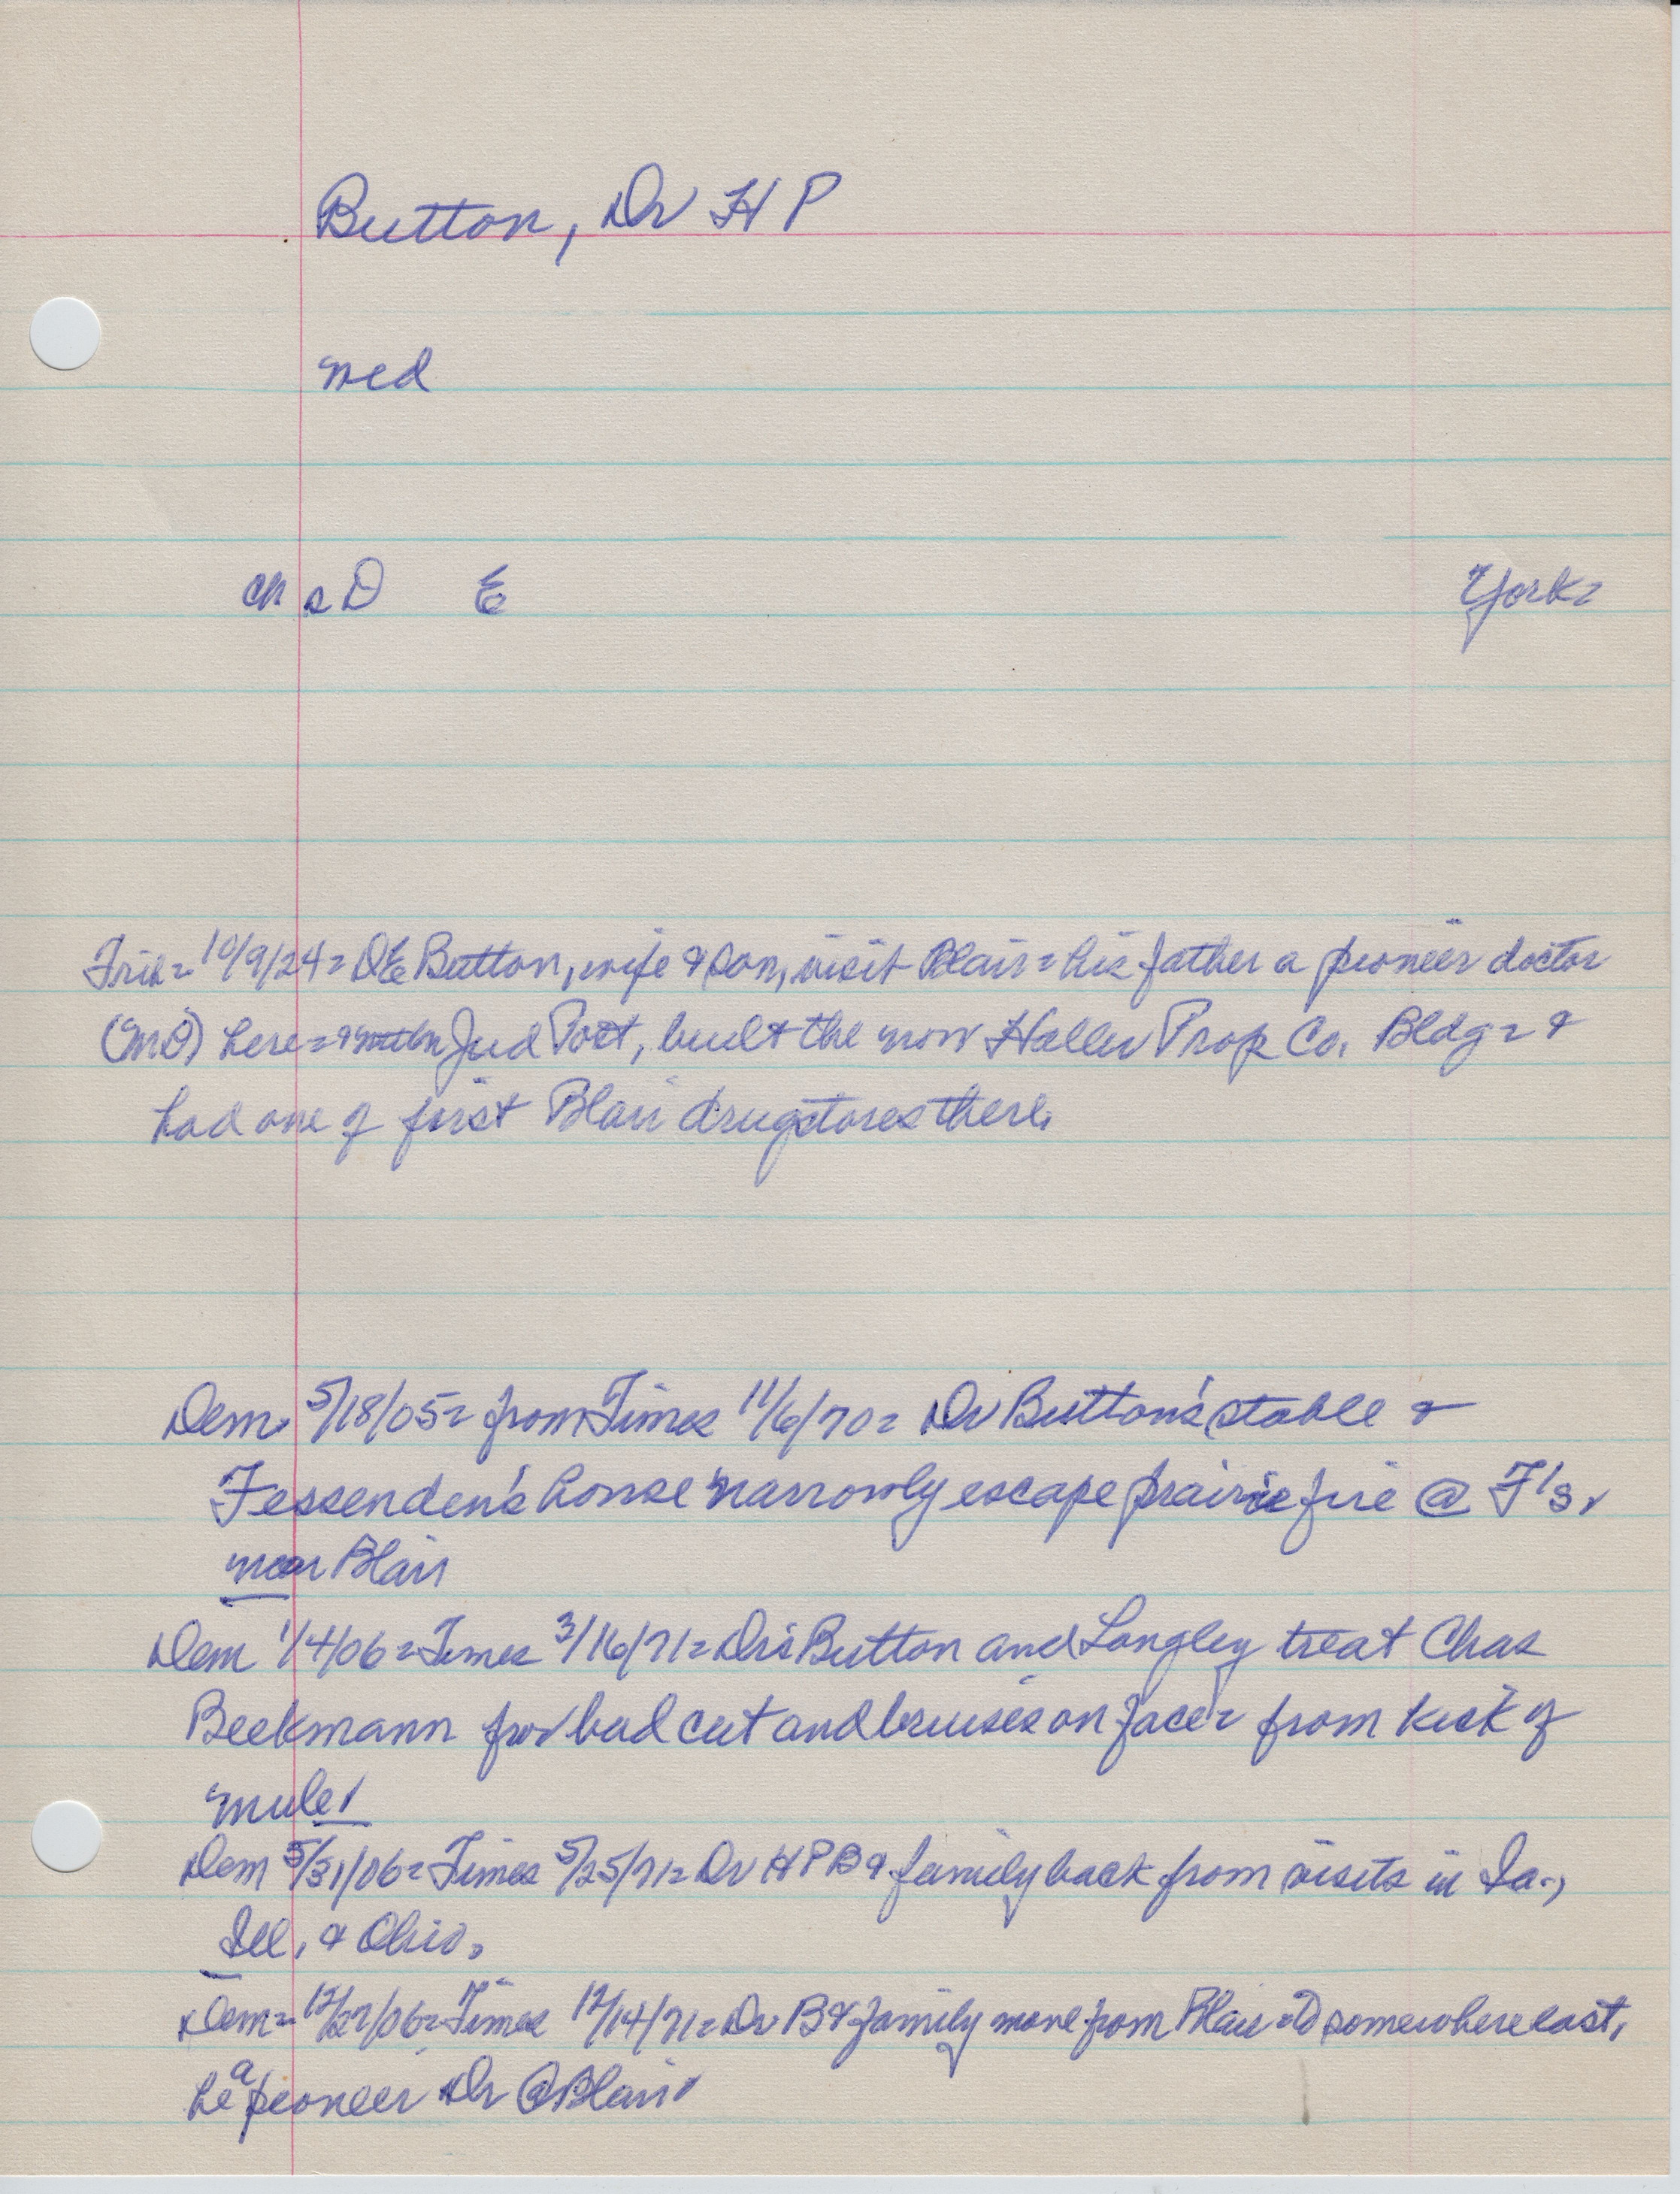 Button, Dr H P
med
ch s D E York=
Trib= 10/9/24= D E Button, wife & son, visit Blair= his father a pioneer doctor
(MD) here= & Jud Post, built the now Haller Prop Co. Bldg= &
had one of first Blair drugstores there.
Dem. 5/18/05= from Times 11/6/70= Dr Button's stable &
Fessenden's house narrowly escape prairie fire @ F's.
near Blair
Dem 1/4/06= Times 3/16/71= Drs Button and Longley treat Chas
Beekmann for bad cut and bruises on face= from kick of
mule.
Dem 5/31/06= Times 5/25/71= Dr H P B & family back from visits in Ia.,
Ill. & Ohio.
Dem= 12/27/06= Times 12/14/71= Dr B & family move from Blair =To somewhere east.
he a pioneer Dr @ Blair.